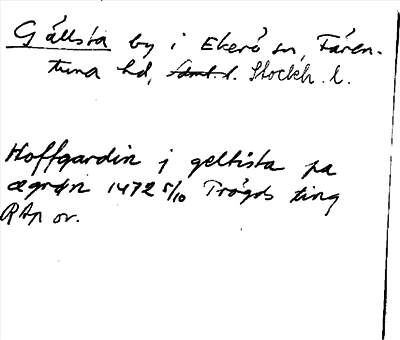 Gällsta by i Ekerö sn, Fären-
tuna hd, Stockh. l.
Hoffgardin j geltista pa
ægrøn 1472 5/10 Trögds ting
RAp or.